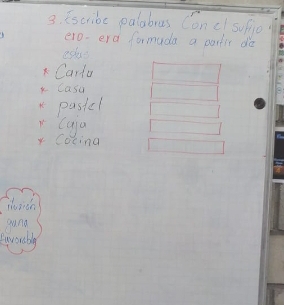 3. Escribe palabras Con el sufijo
ero - era formada a partir de
estas
* Carta
* Casa
* pastel
* Caja
* Cocina
favorable